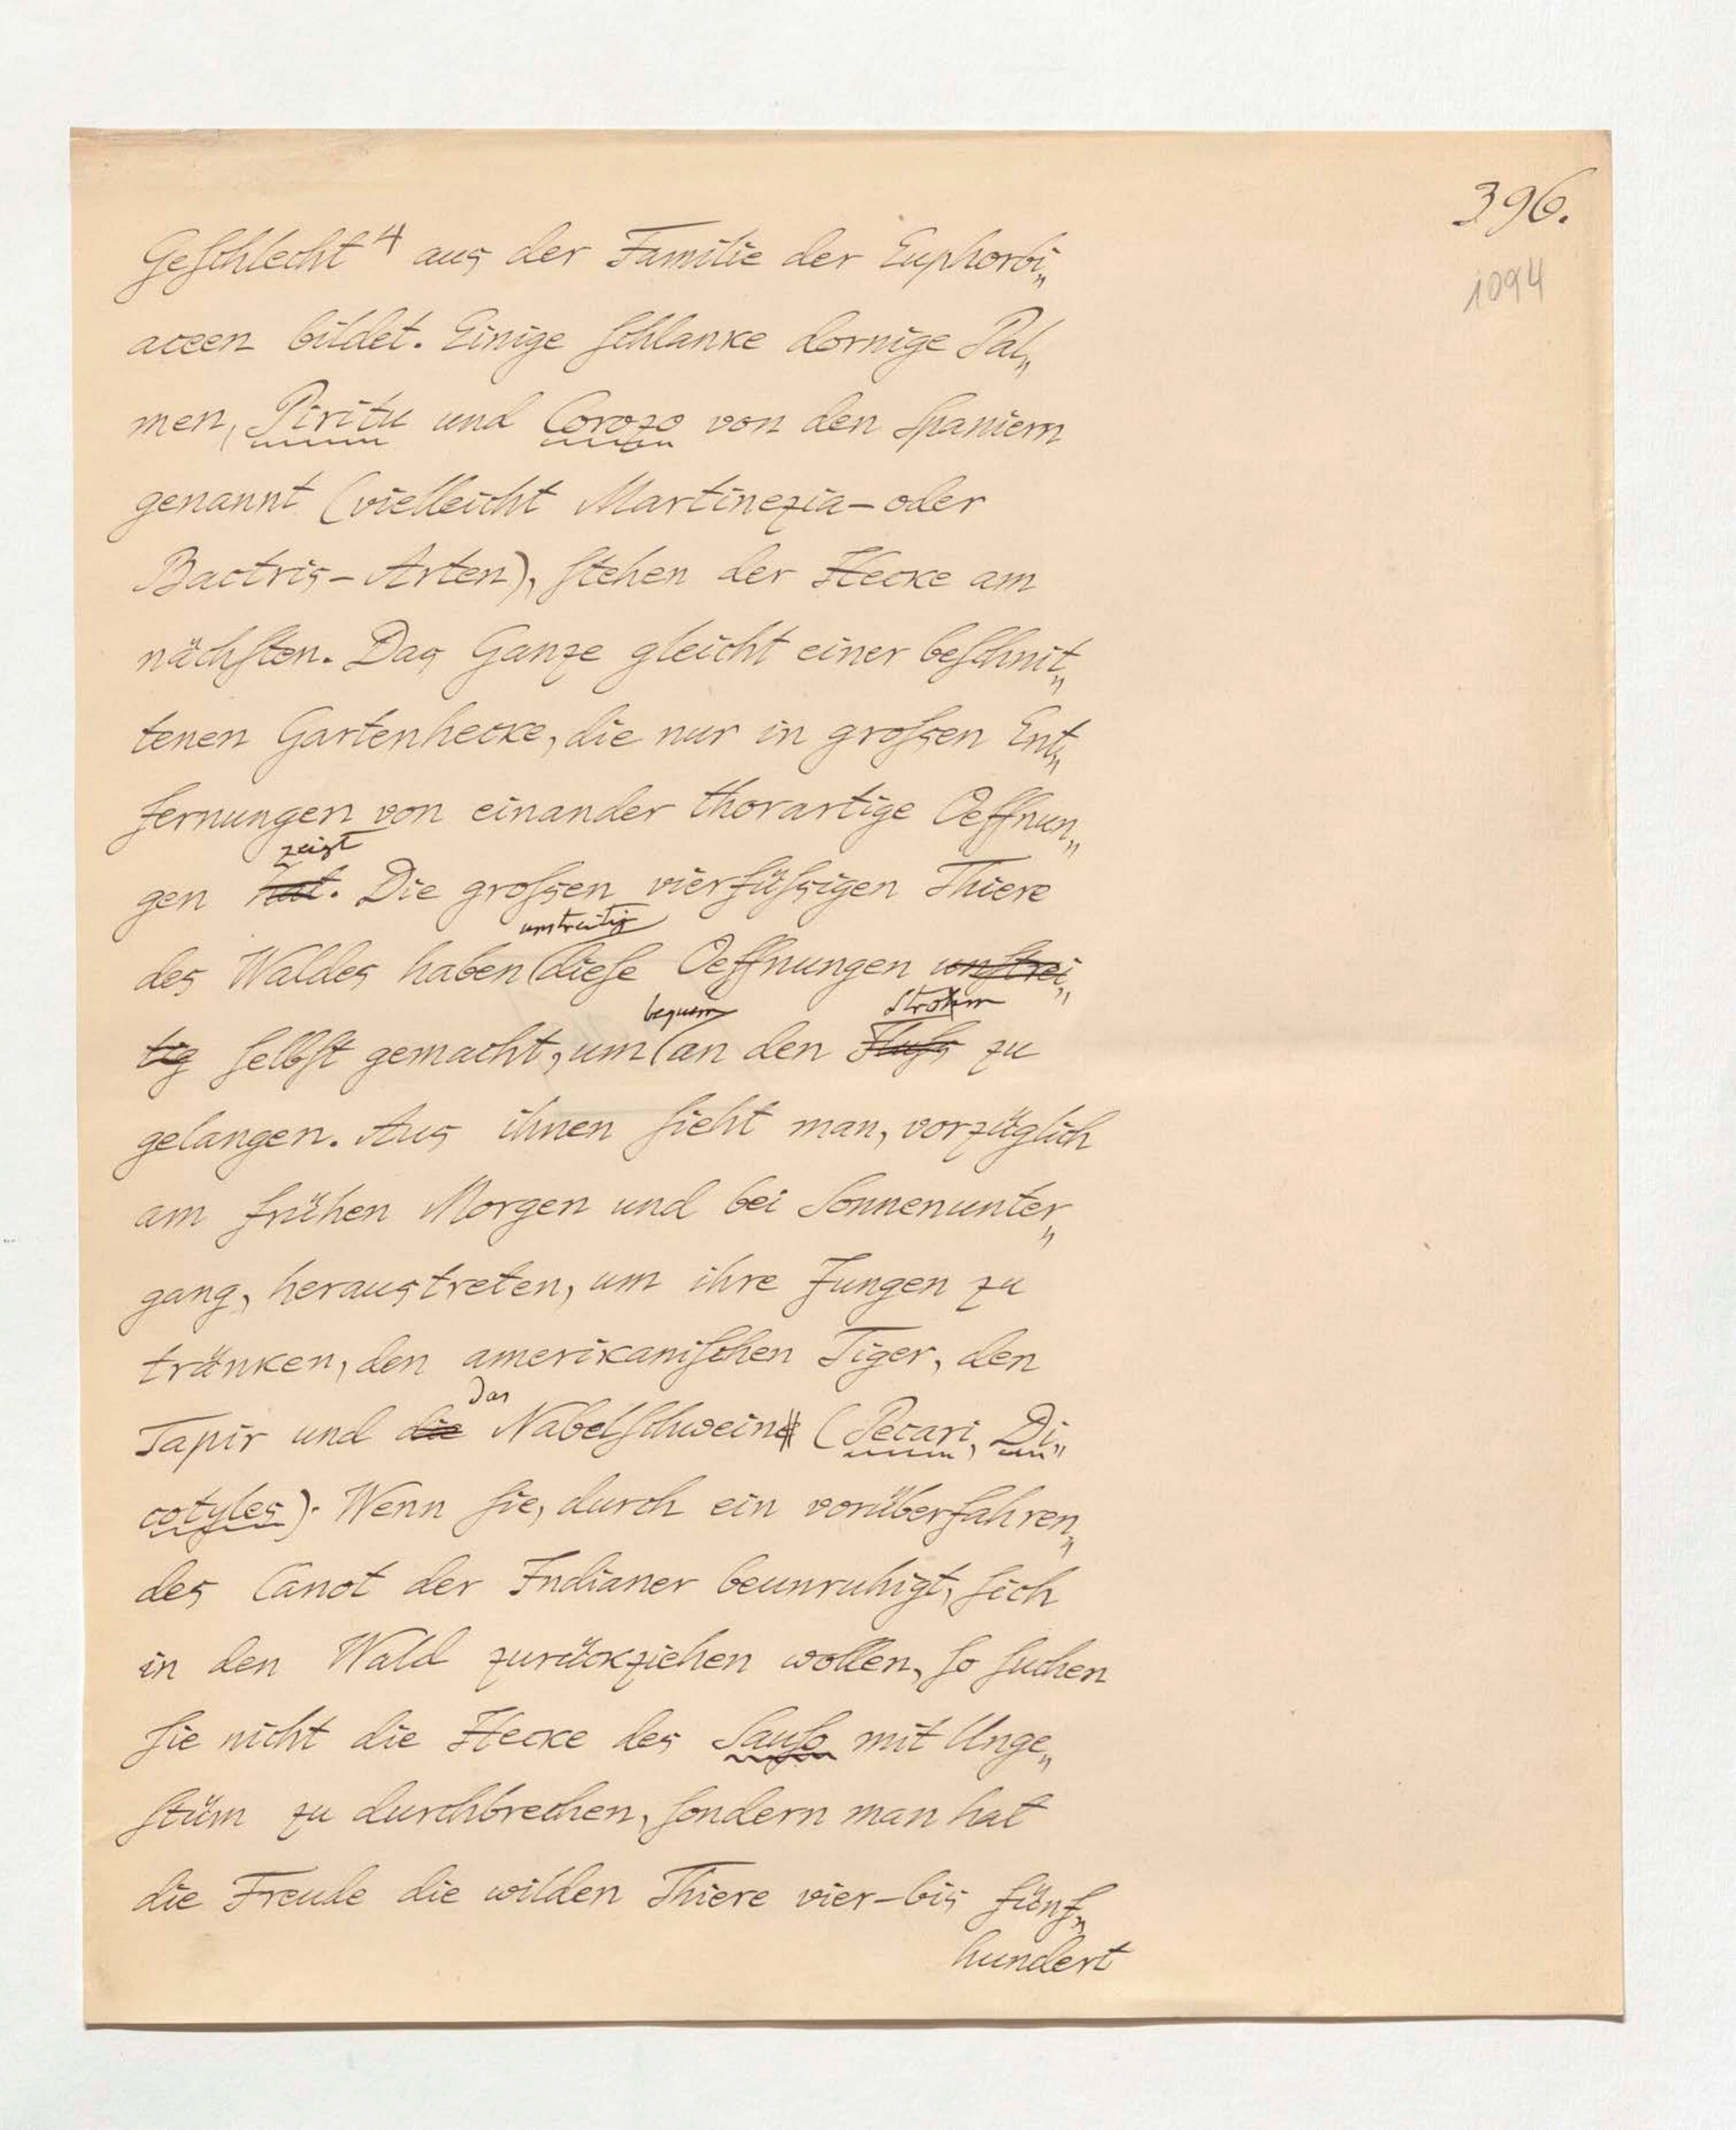 396.
1094
Geschlecht⁴ aus der Familie der Euphorbi„
aceen bildet. Einige schlanke dornige Pal„
men, Piritu und Corozo von den Spaniern
genannt (vielleicht Martinezia- oder
Bactris-Arten), stehen der Hecke am
nächsten. Das Ganze gleicht einer beschnit„
tenen Gartenhecke, die nur in großen Ent„
fernungen von einander thorartige Oeffnun„
zeigt
gen hat. Die großen vierfüßigen Thiere
unstreitig
des Waldes haben diese Oeffnungen unstrei„
bequem Strohm
tig selbst gemacht, um an den Fluß zu
gelangen. Aus ihnen sieht man, vorzüglich
am frühen Morgen und bei Sonnenunter„
gang, heraustreten, um ihre Jungen zu
tränken, den amerikanischen Tiger, den
das
Tapir und die Nabelschweine (Pecari, Di„
cotyles). Wenn sie, durch ein vorüberfahren„
des Canot der Indianer beunruhigt, sich
in den Wald zurückziehen wollen, so suchen
sie nicht die Hecke des Sauso mit Unge„
stüm zu durchbrechen, sondern man hat
die Freude die wilden Thiere vier- bis fünf„
hundert